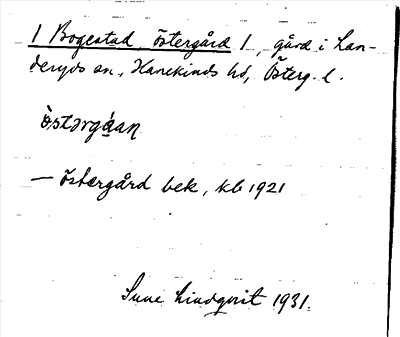 / Bogestad, Östergård /, gård i Lan-
deryds sn, Hanekinds hd, Österg. l.
òstərgá̱an
— Östergård bek, kb 1921
Sune Lindqvist 1931.